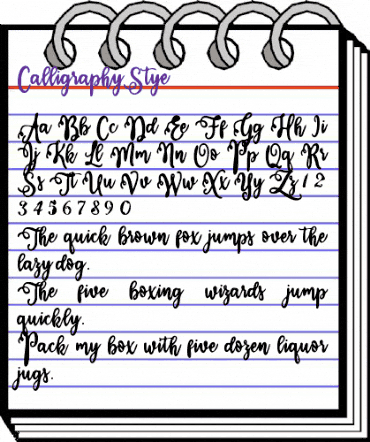 Calligraphy Stye
Aa Bb Cc Dd Ee Ff Gg Hh Ii
Jj Kk Ll Mm Nn Oo Pp Qq Rr
Ss Tt Uu Vv Ww Xx Yy Zz 1 2
3 4 5 6 7 8 9 0
The quick brown fox jumps over the
lazy dog.
The five boxing wizards jump
quickly.
Pack my box with five dozen liquor
jugs.